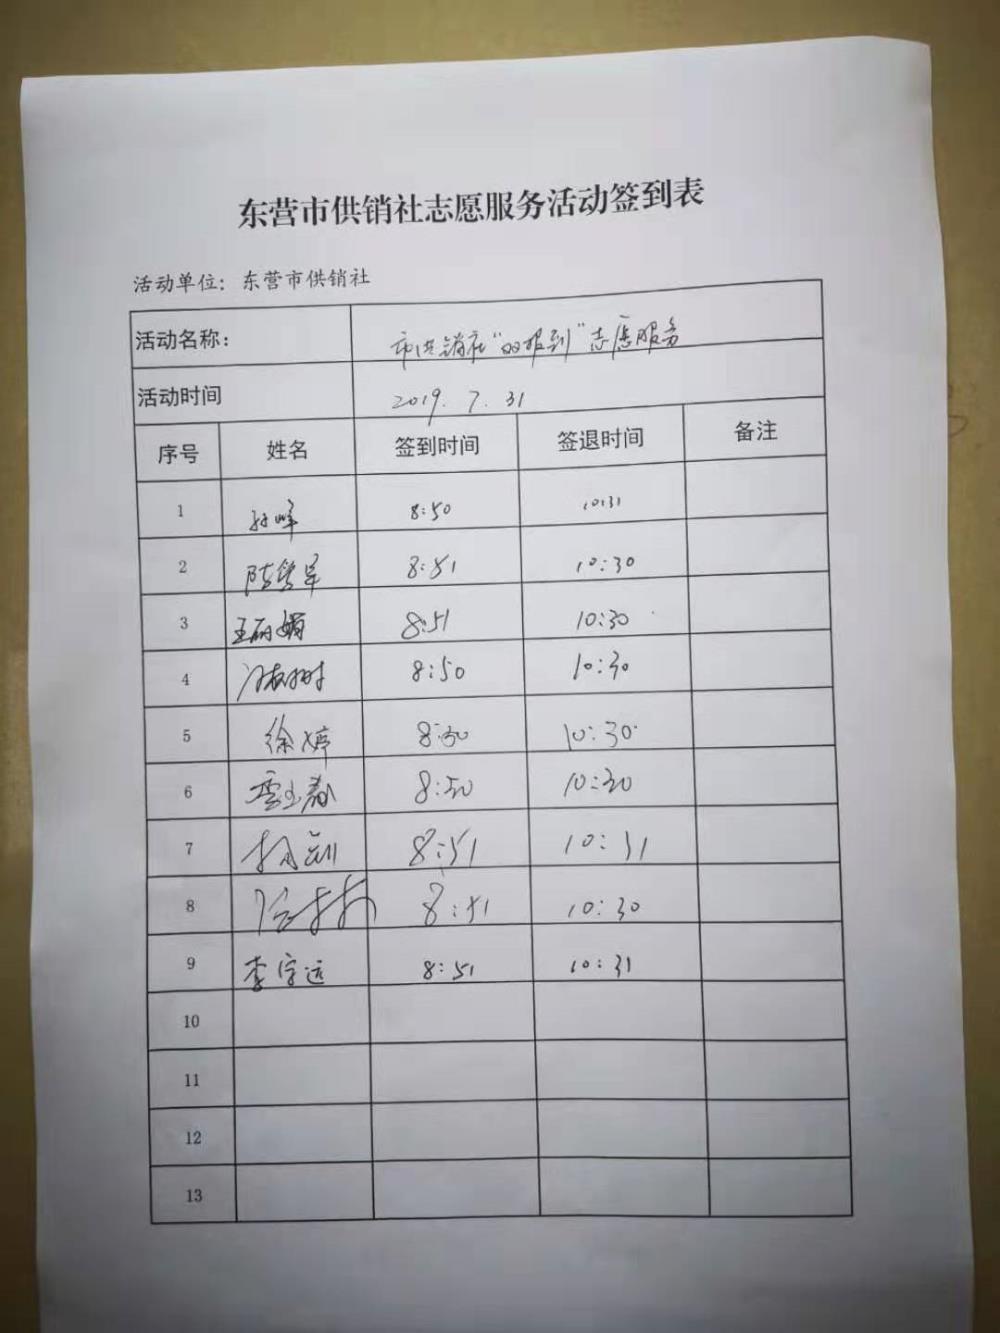 东营市供销社志愿服务活动签到表
活动单位：东营市供销社
活动名称： 市供销社“双报到”志愿服务
活动时间 2019.7.31
序号 姓名 签到时间 签退时间 备注
1 孙峰 8:50 10:31
2 8:51 10:30
3 王丽娟 8:51 10:30
4 8:50 10:30
5 徐婷 8:50 10:30
6 8:50 10:30
7 8:51 10:31
8 8:51 10:30
9 李宗远 8:51 10:31
10
11
12
13